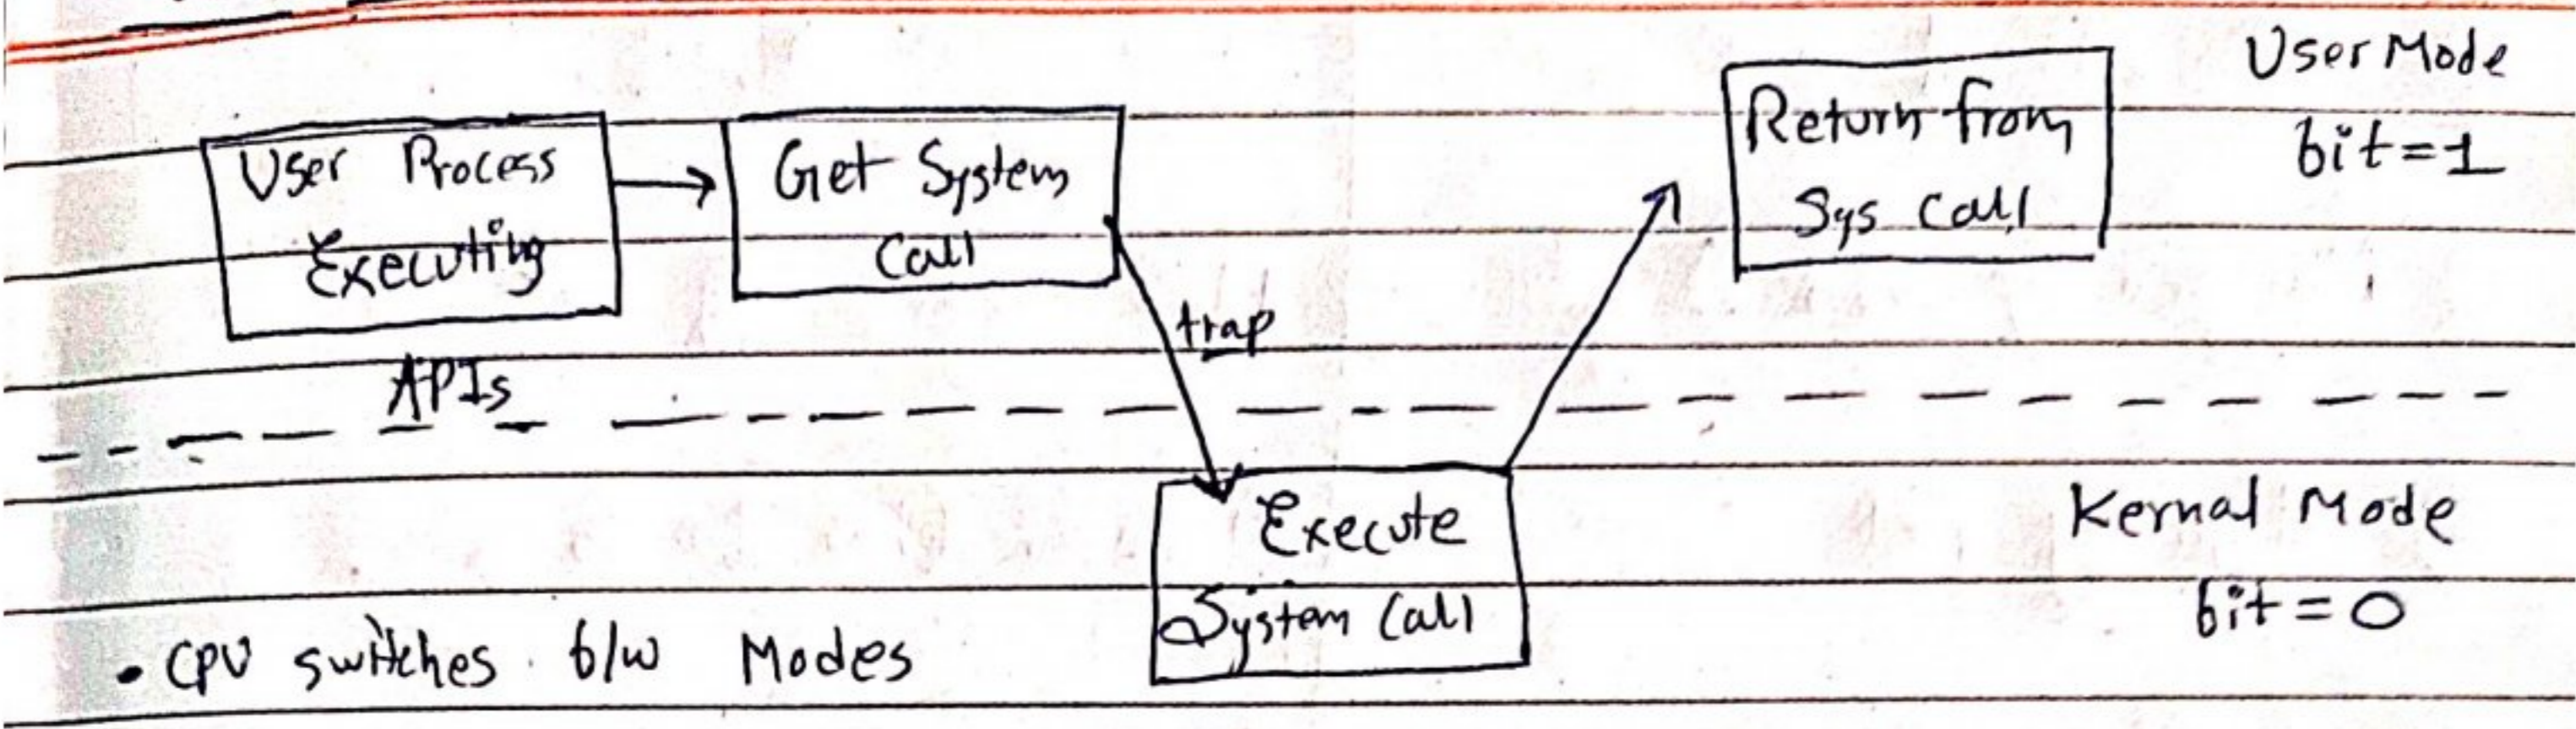 User Process
Executing
Get System
Call
Return from
Sys Call
User Mode
bit=1
trap
APIs
Execute
System Call
Kernal Mode
bit=0
• CPU switches b/w Modes